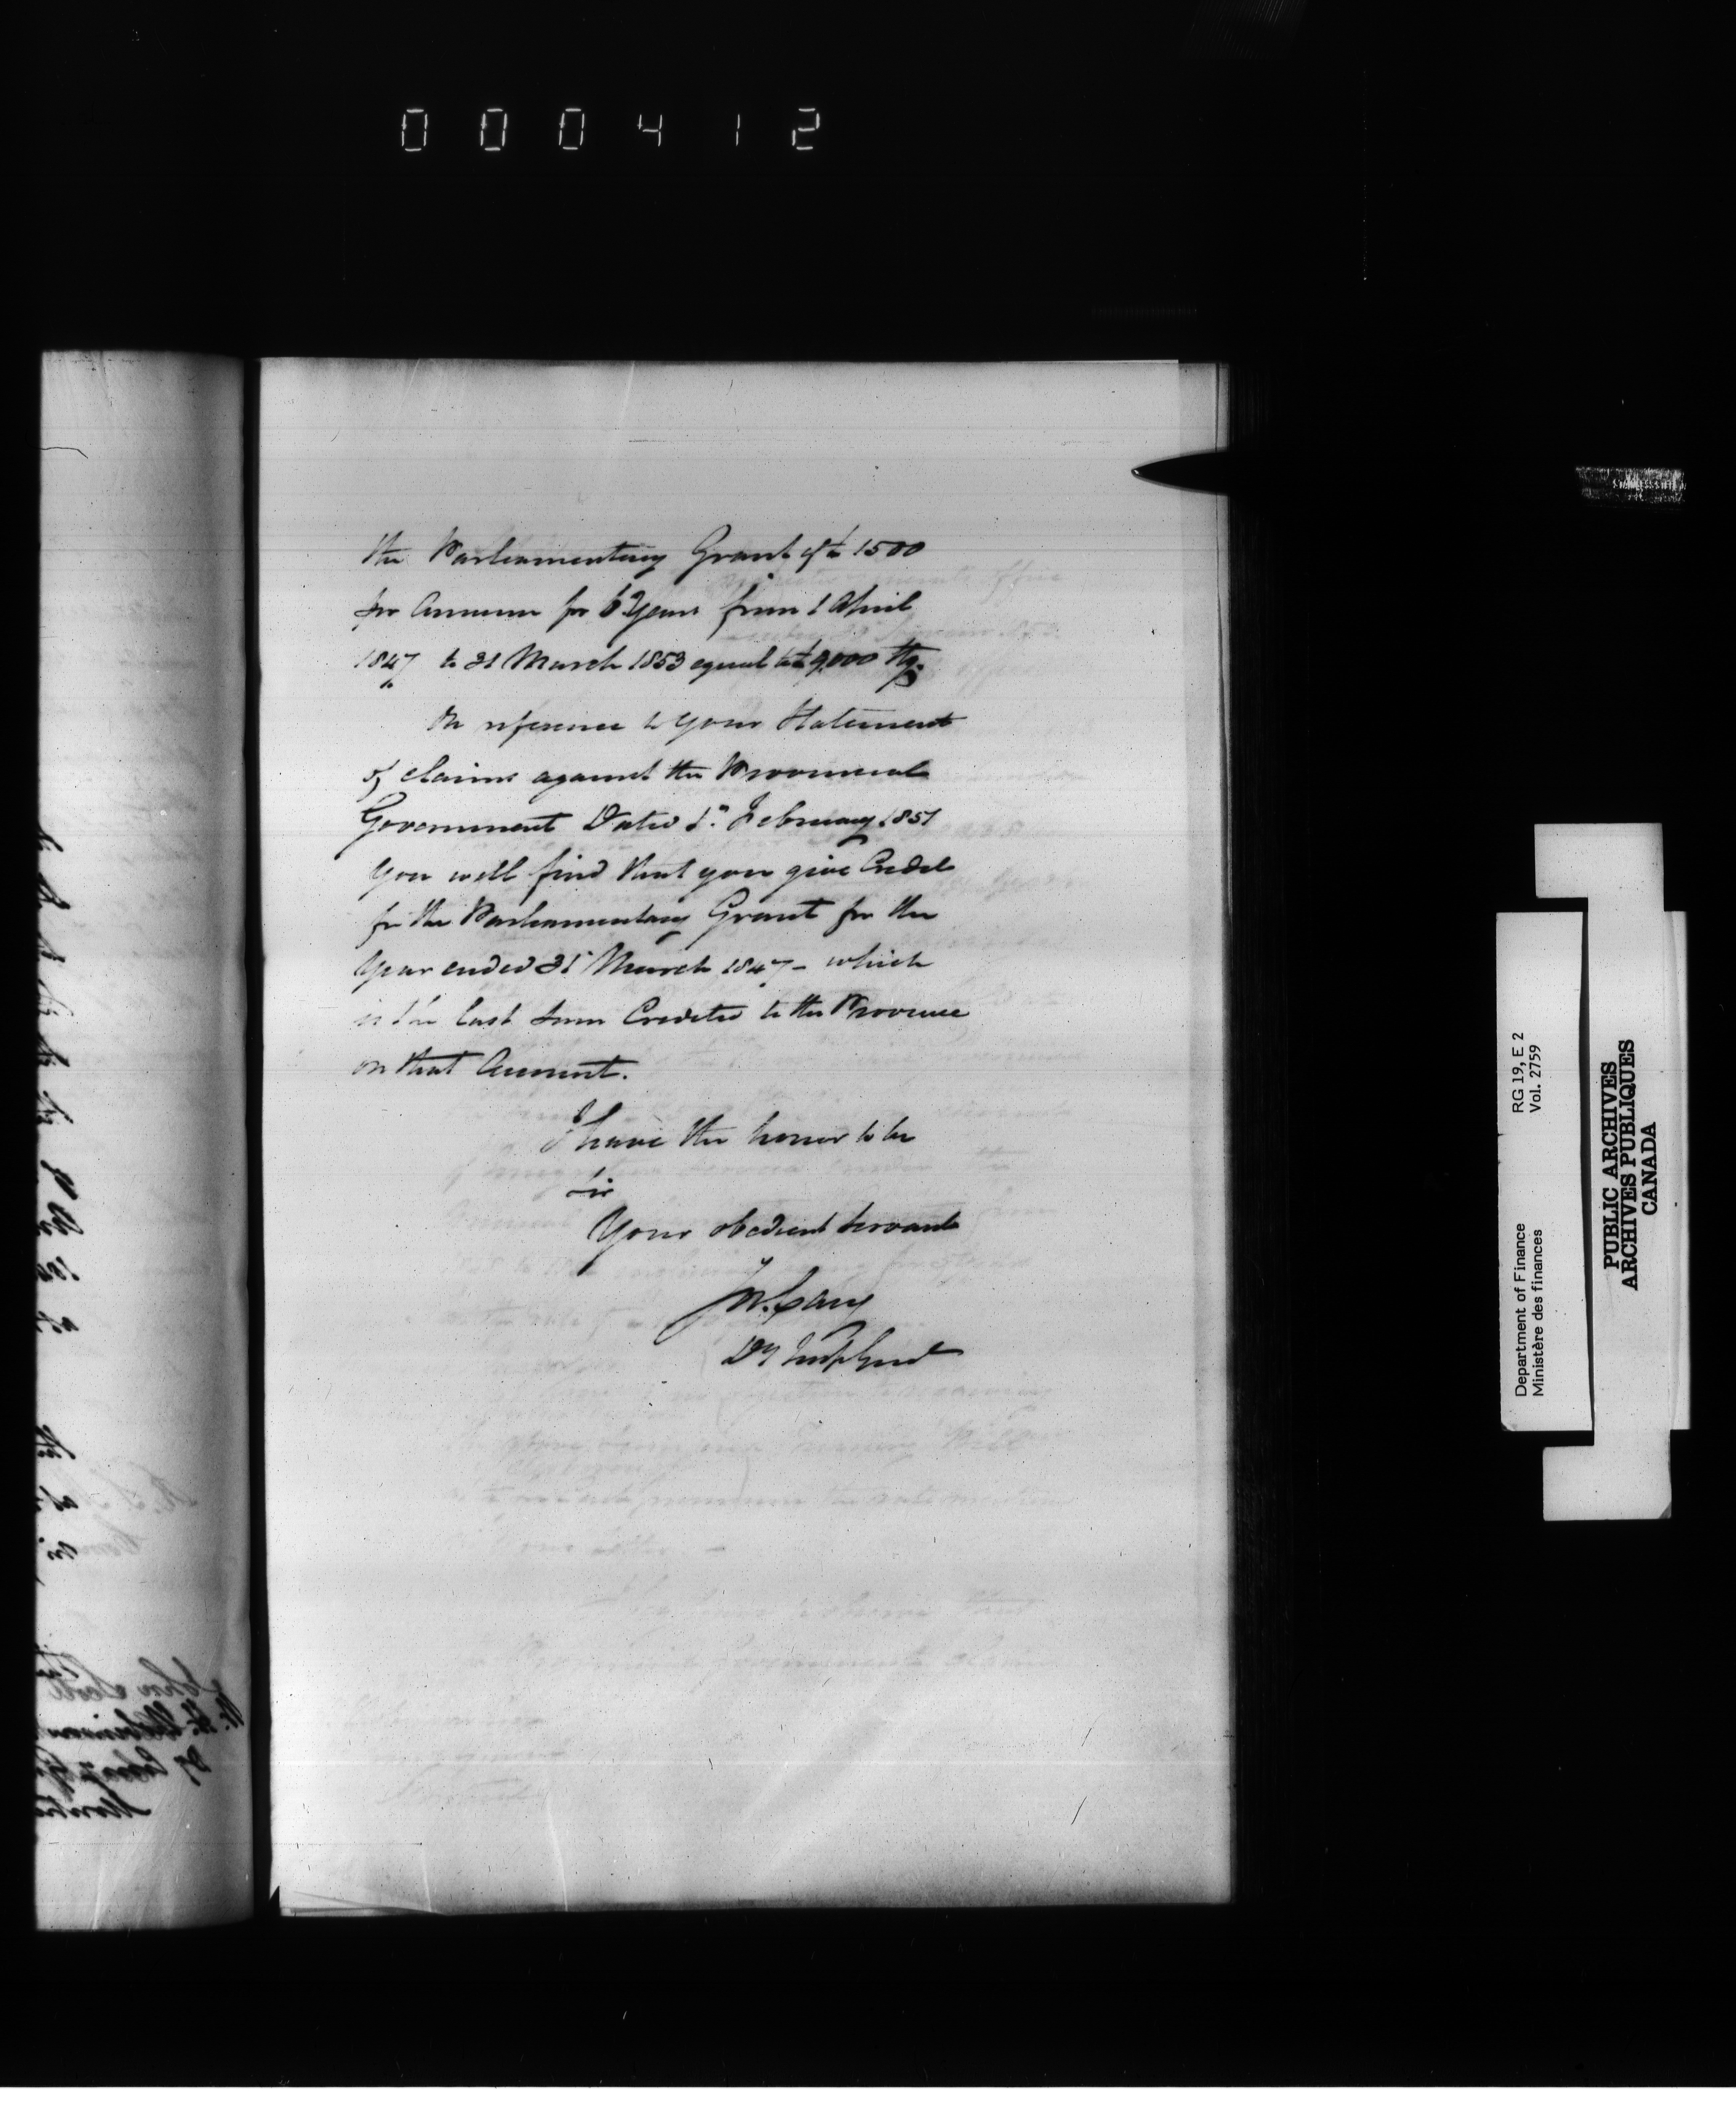 000412
the Parliamentary Grant of £1500
per Annum for 6 Years from 1 April
1847 to 31 March 1853 equal to £9,000 Stg.
On reference to your Statement
of claims against the Provincial
Government Dated 1st February 1851
you will find that you give Credit
for the Parliamentary Grant for the
Year ended 31 March 1847 - which
is the last sum Credited to the Province
on that Account.
I have the honor to be
Sir
Your obedient Servant
Jos. Cary
Dy Insp Genl
RG 19, E 2
Vol. 2759
Department of Finance
Ministère des finances
PUBLIC ARCHIVES
ARCHIVES PUBLIQUES
CANADA